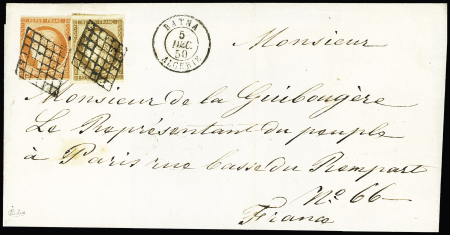 REPUB FRANC
BATNA
5
DEC.
50
ALGERIE
Monsieur
Monsieur de la Guibougère
Le Représentant du peuple
à Paris rue basse du Rempart
N° 66
France